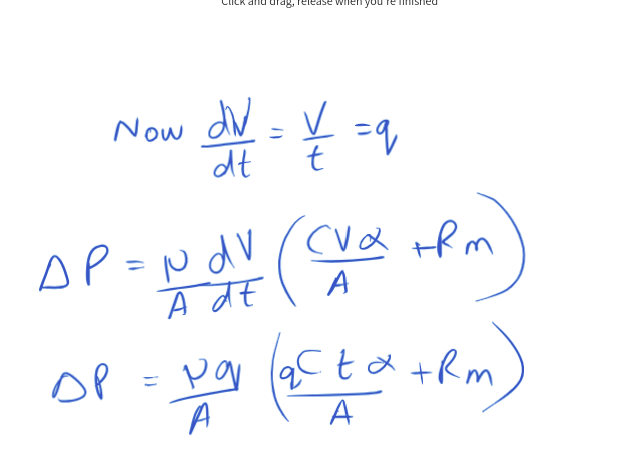 Click and drag, release when you're finished
Now dV/dt = V/t = q
ΔP = μ/A dV/dt (CVα/A + Rm)
ΔP = μq/A (qCtα/A + Rm)